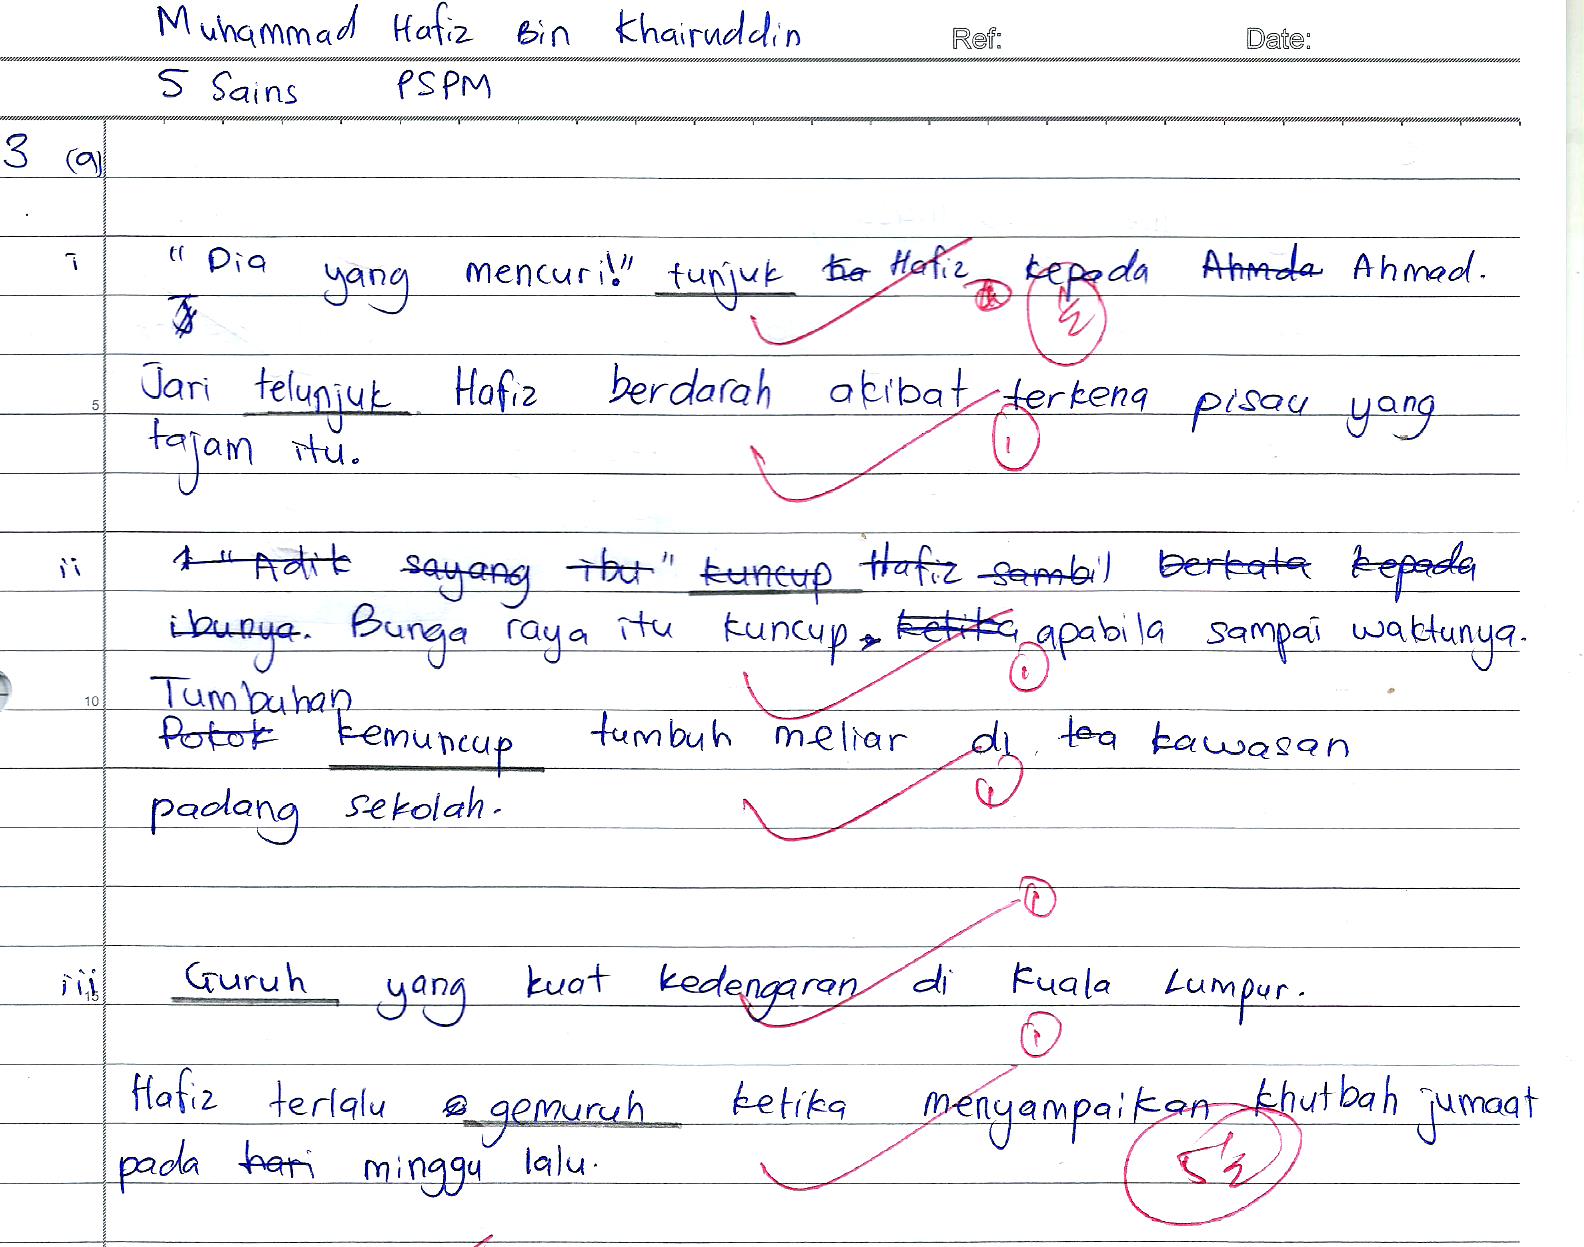 Muhammad Hafiz Bin Khairuddin Ref: Date:
5 Sains PSPM
3 (a)
i "Dia yang mencuri!" tunjuk Hafiz kepada Ahmda Ahmad.
½
5 Jari telunjuk Hafiz berdarah akibat terkena pisau yang
tajam itu.
1
ii "Adik sayang ibu" kuncup Hafiz sambil berkata kepada
ibunya. Bunga raya itu kuncup ketika apabila sampai waktunya.
1
10 Tumbuhan
Pokok kemuncup tumbuh meliar di kawasan
1
padang sekolah.
1
iii 15 Guruh yang kuat kedengaran di Kuala Lumpur.
1
Hafiz terlalu gemuruh ketika menyampaikan khutbah jumaat
pada hari minggu lalu.
5½